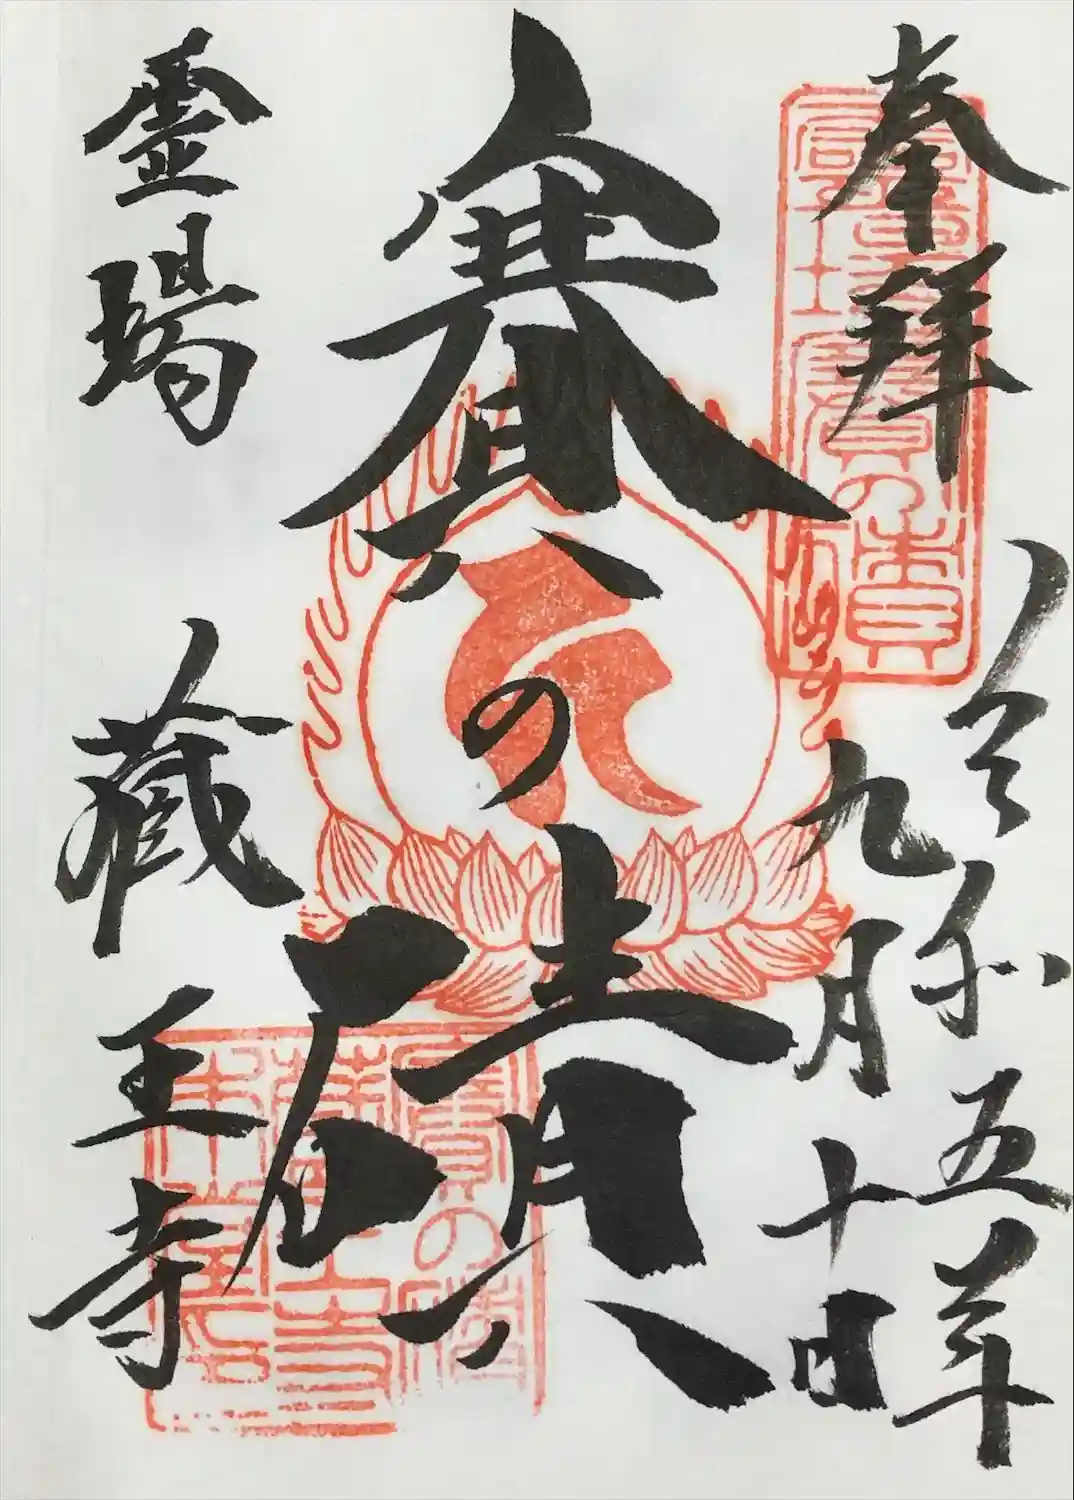 奉拝
令和五年
九月十日
賽の磧
霊場 蔵王寺